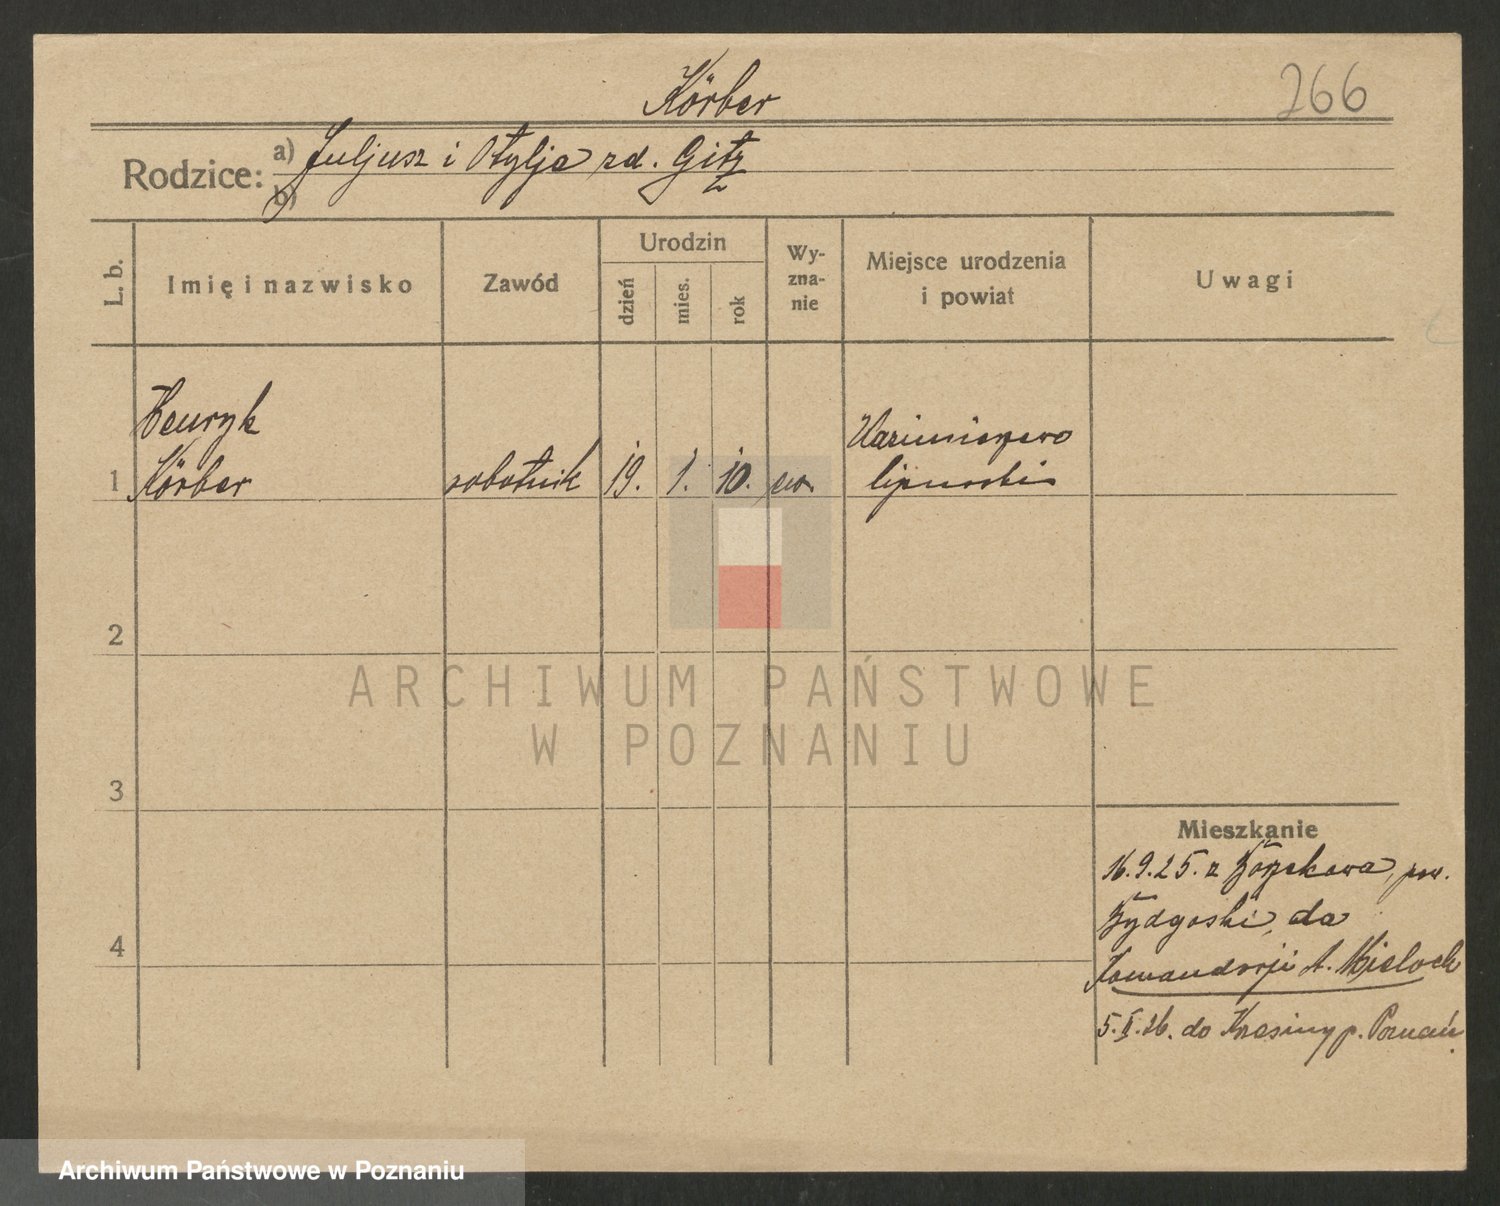 Körber
266
Rodzice: a) Juljusz i Otylja zd. Gitz
b)
L. b.
Imię i nazwisko
Zawód
Urodzin
dzień
mies.
rok
Wy-
zna-
nie
Miejsce urodzenia
i powiat
Uwagi
Henryk
1 Körber
robotnik 19. 1. 10. ew.
Kazimierzewo
lipnoski
2
ARCHIWUM PAŃSTWOWE
W POZNANIU
3
Mieszkanie
16.9.25. z pow.
4 Bydgoski, do
Komandorji A. Mieloch
5.II.26. do Kresiny p. Poznań.
Archiwum Państwowe w Poznaniu